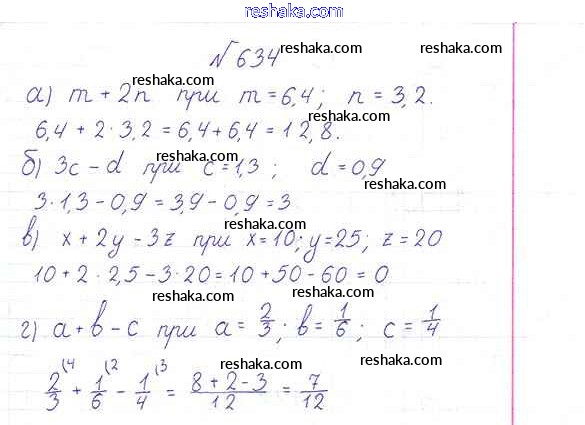 reshaka.com
№ 634
reshaka.com
reshaka.com
reshaka.com
а) m + 2n при m = 6,4; n = 3,2.
reshaka.com
reshaka.com
6,4 + 2 · 3,2 = 6,4 + 6,4 = 12,8.
reshaka.com
б) 3c - d при c = 1,3; d = 0,9
reshaka.com
3 · 1,3 - 0,9 = 3,9 - 0,9 = 3
reshaka.com
reshaka.com
в) x + 2y - 3z при x = 10; y = 25; z = 20
10 + 2 · 2,5 - 3 · 20 = 10 + 50 - 60 = 0
reshaka.com
reshaka.com
г) a + b - c при a = 2/3; b = 1/6; c = 1/4
reshaka.com
reshaka.com
2/3 (4 + 1/6 (2 - 1/4 (3 = 8 + 2 - 3 / 12 = 7/12